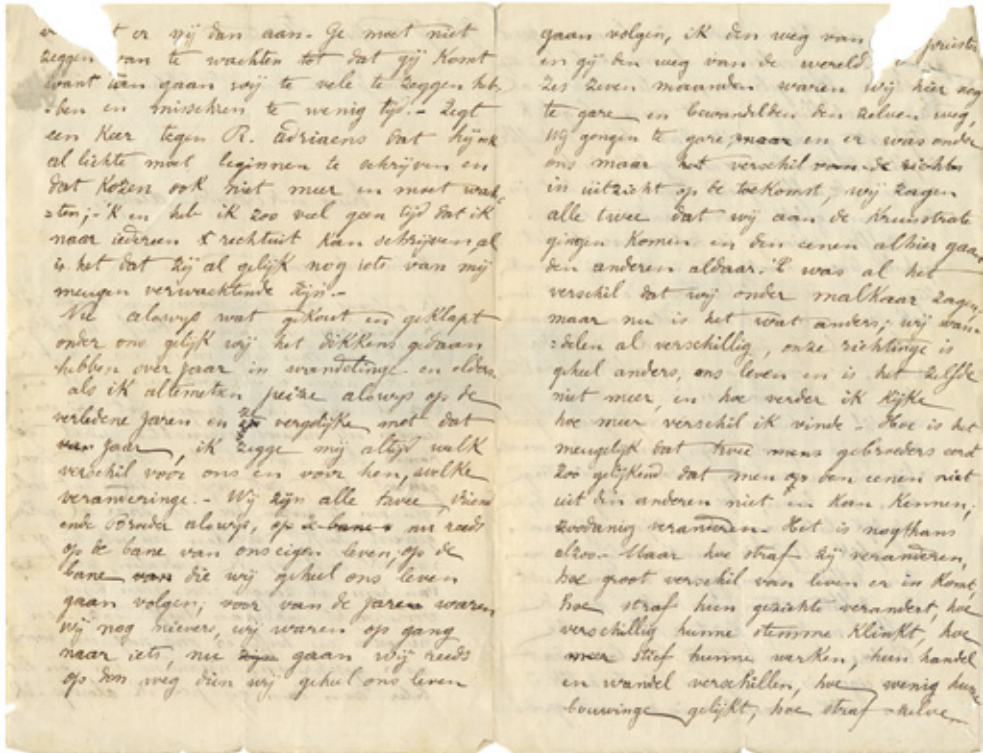 er wij dan aan. Ge moet niet
zeggen van te wachten tot dat gij komt
want dan gaan wij te vele te zeggen heb-
-ben en misschien te wenig tijd.- Zegt
een keer tegen R. Adriaens dat hij ook
al lichte moet beginnen te schrijven en
dat Kozen ook niet meer en moet wach
=ten; 'k en heb ik zoo veel geen tijd dat ik
naar iedereen rechtuit kan schrijven, al
is het dat zij al gelijk nog iets van mij
meugen verwachtende zijn.-
Nu aloüys wat gekout en geklapt
onder ons gelijk wij het dikkens gedaan
hebben over jaar in wandelinge en elders.
als ik altemets peize aloüys op de
verledene jaren en ze vergelijke met dat
van jaar, ik zegge mij altijd welk
verschil voor ons en voor hen, welke
veranderinge.- Wij zijn alle twee Vriend
ende Broeder aloüys, op de bane nu reeds
op de bane van ons eigen leven, op de
bane van die wij geheel ons leven
gaan volgen; voor van de jaren waren
wij nog nievers, wij waren op gang
naar iets, nu zijn gaan wij reeds
op den weg dien wij geheel ons leven
gaan volgen, ik den weg van priester
en gij den weg van de wereld
Zes zeven maanden waren wij hier nog
te gare en bewandelden den zelven weg,
wij gongen te gare, maar en er was onder
ons maar het verschil van de richte
in uitzicht op de toekomst, wij zagen
alle twee dat wij aan de kruustrate
gingen komen en den eenen alhier gaan
den anderen aldaar, 't was al het
verschil dat wij onder malkaar zagen,
maar nu is het wat anders; wij wan-
=delen al verschillig, onze richtinge is
geheel anders, ons leven en is het zelfde
niet meer, en hoe verder ik kijke
hoe meer verschil ik vinde.- Hoe is het
meugelijk dat twee mens gebroeders eerst
zoo gelijkend dat men op den eenen niet
uit den anderen niet en kan kennen,
zoodanig veranderen. Het is nogthans
alzoo.- Maar hoe straf zij veranderen,
hoe groot verschil van leven er in komt,
hoe straf hun gezichte verandert, hoe
verschillig hunne stemme klinkt, hoe
meer stief hunne werken, hun handel
en wandel verschillen, hoe wenig hunne
bouwinge gelijkt, hoe straf zelve